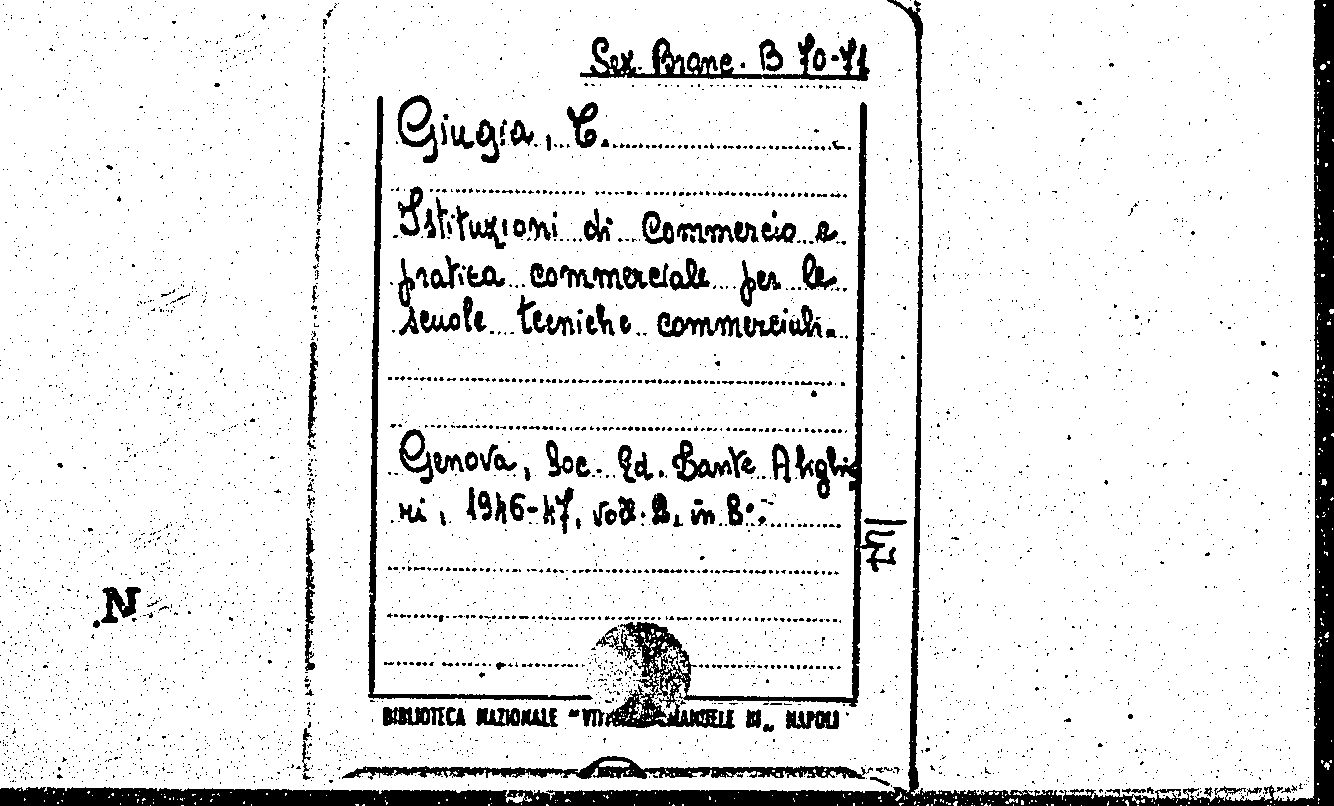 Sez. Branc. B 70-71
Giugia, C.
Istituzioni di Commercio e
pratica commerciale per le
scuole tecniche commerciali.
Genova, Soc. Ed. Dante Alighie
ri, 1946-47, voll. 2, in 8°.
N
BIBLIOTECA NAZIONALE "VITTORIO EMANUELE III„ NAPOLI